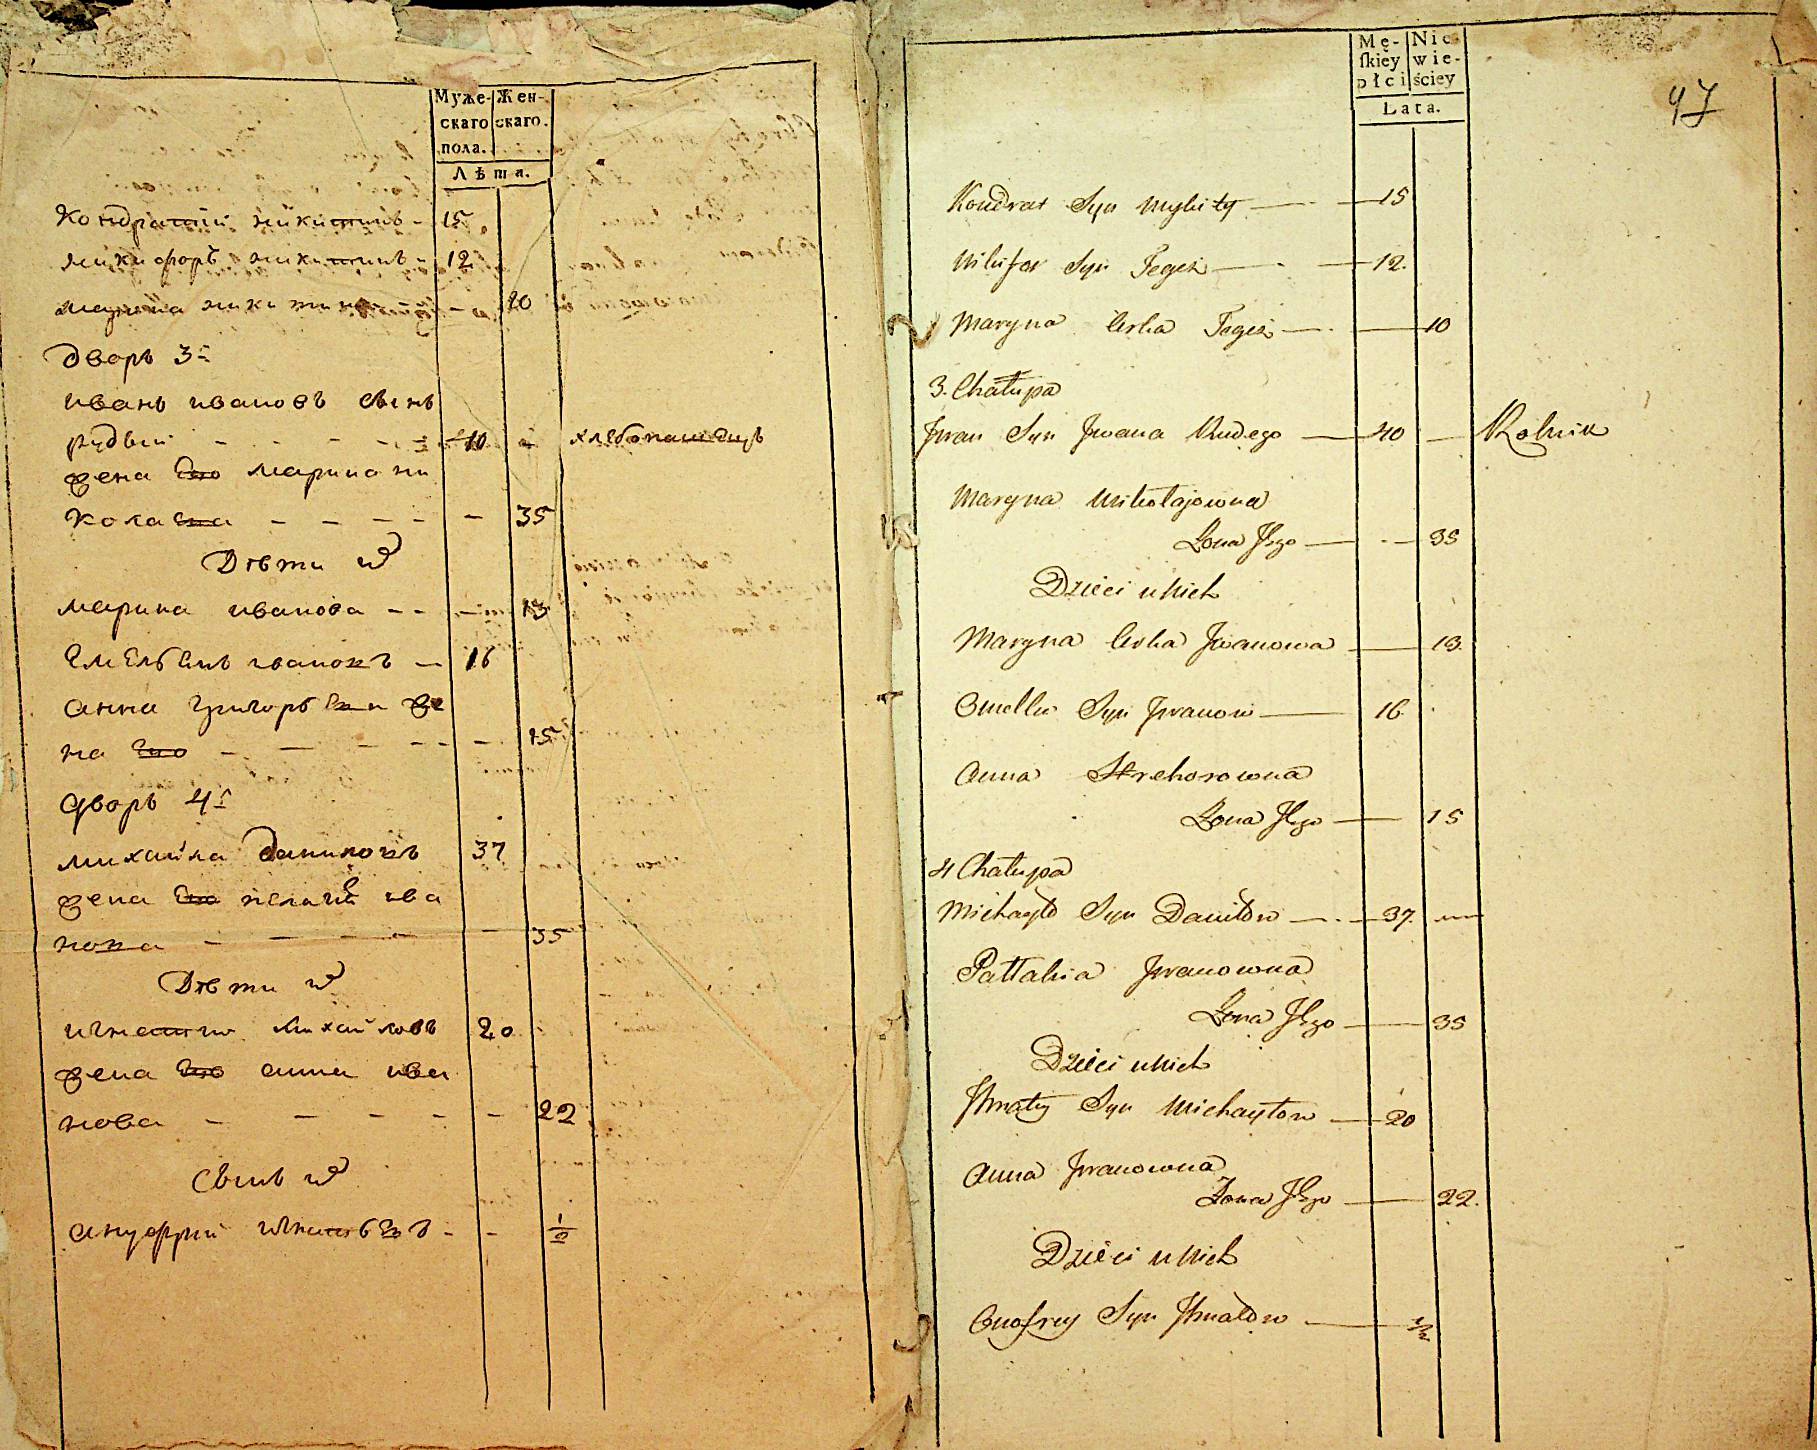 Муже- Жен-
скаго скаго.
пола.
Лѣта.
Кондратій никитинъ - 15
никифоръ никитинъ - 12
марина никитина - 10
дворъ 3й
иванъ ивановъ сынъ
рудый - - - - - 40 - хлебопашецъ
жена Его марина ни
колаева - - - - - 35
Дѣти их
марина иванова - - - 13
Емельянъ ивановъ - 16
анна григорьева же
на Его - - - - - - 15
дворъ 4й
михайла даниловъ 37
жена Его пелагея ива
нова - - - - - 35
Дѣти их
игнатий михайловъ 20
жена Его анна ива
нова - - - - - 22
Сынъ их
ануфрий игнатьевъ - - 1/2
Mę- Nie
skiey wie-
płci ściey
Lata.
47
Kondrat Syn Mykity — 15
Nikifor Syn Tegoż — 12.
Maryna Corka Tegoż — 10
3. Chałupa
Jwan Syn Jwana Rudego — 40 — Rolnik
Maryna Mikołajowna
Żona Jego — 35
Dzieci u Nich
Maryna Corka Jwanowa — 13.
Omelko Syn Jwanow — 16.
Anna Hrehorowna
Żona Jego — 15
4 Chałupa
Michayło Syn Daniłow — 37. —
Pałłahia Jwanowna
Żona Jego — 35
Dzieci u Nich
Jhnaty Syn Michayłow — 20
Anna Jwanowna
Żona Jego — 22.
Dzieci u Nich
Onofrey Syn Jhnatow — 1/2